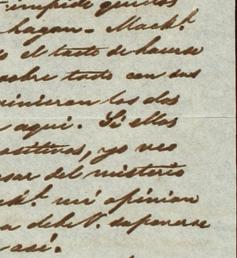 impide que los
hagan – Mack.
el tacto de hacerse
sobre todo con sus
vinieron los dos
aquí. Si ellos
positivos, yo veo
pesar del misterio
mi opinion
debe V. suponerse
así.